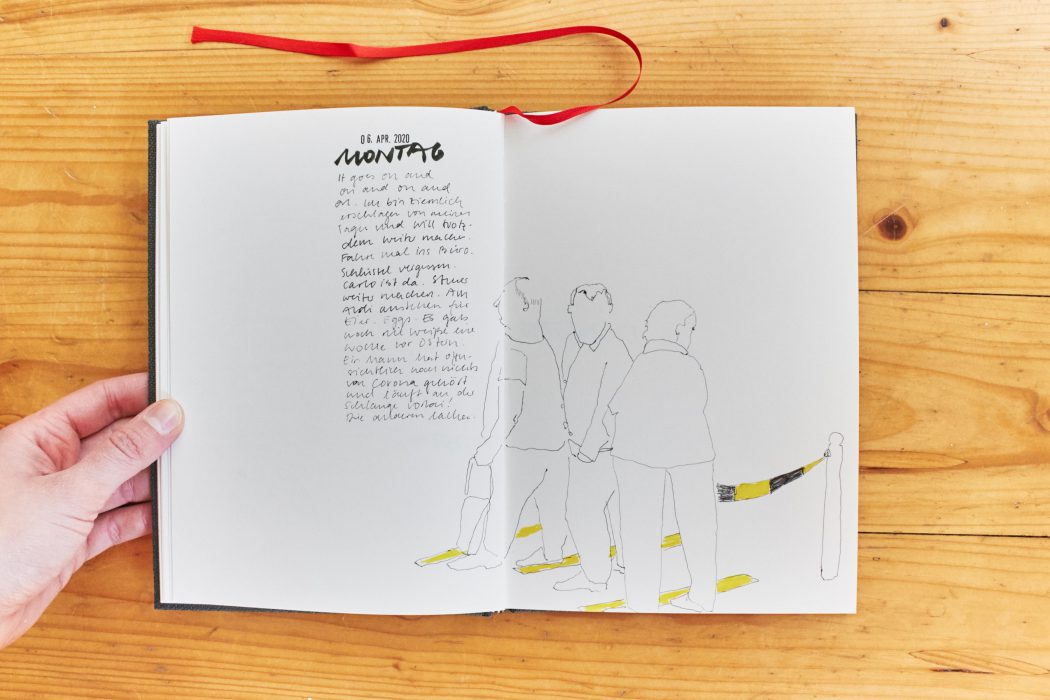 06. APR. 2020
MONTAG
It goes on and
on and on and
on. Ich bin ziemlich
erschlagen von meinen
Tagen und will trotz-
dem weiter machen.
Fahre mal ins Büro.
Schlüssel vergessen.
Carlo ist da. Steuer
weiter machen. Am
Aldi anstehen für
Eier. Eggs. Es gab
noch nie weiße eine
Woche vor Ostern.
Ein Mann hat offen-
sichtlich noch nichts
von Corona gehört
und läuft an der
Schlange vorbei!
Die anderen lachen.